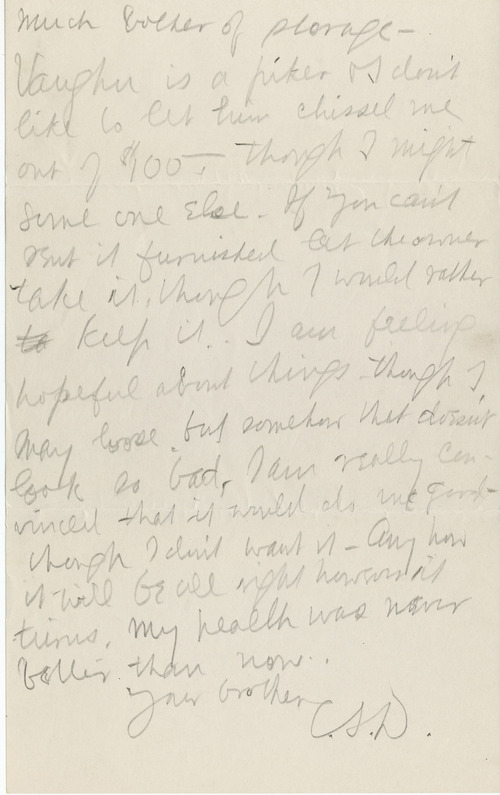 much bother of storage –
Vaughn is a piker & I don't
like to let him chissel me
out of $100 – though I might
some one else. If you can't
rent it furnished let the owner
take it, though I would rather
to keep it.. I am feeling
hopeful about things though I
may loose, but somehow that doesn't
look so bad, I am really con-
vinced that it would do me good –
though I don't want it – Any how
it will be all right however it
turns. My health was never
better than now..
Your brother
C.S.D.